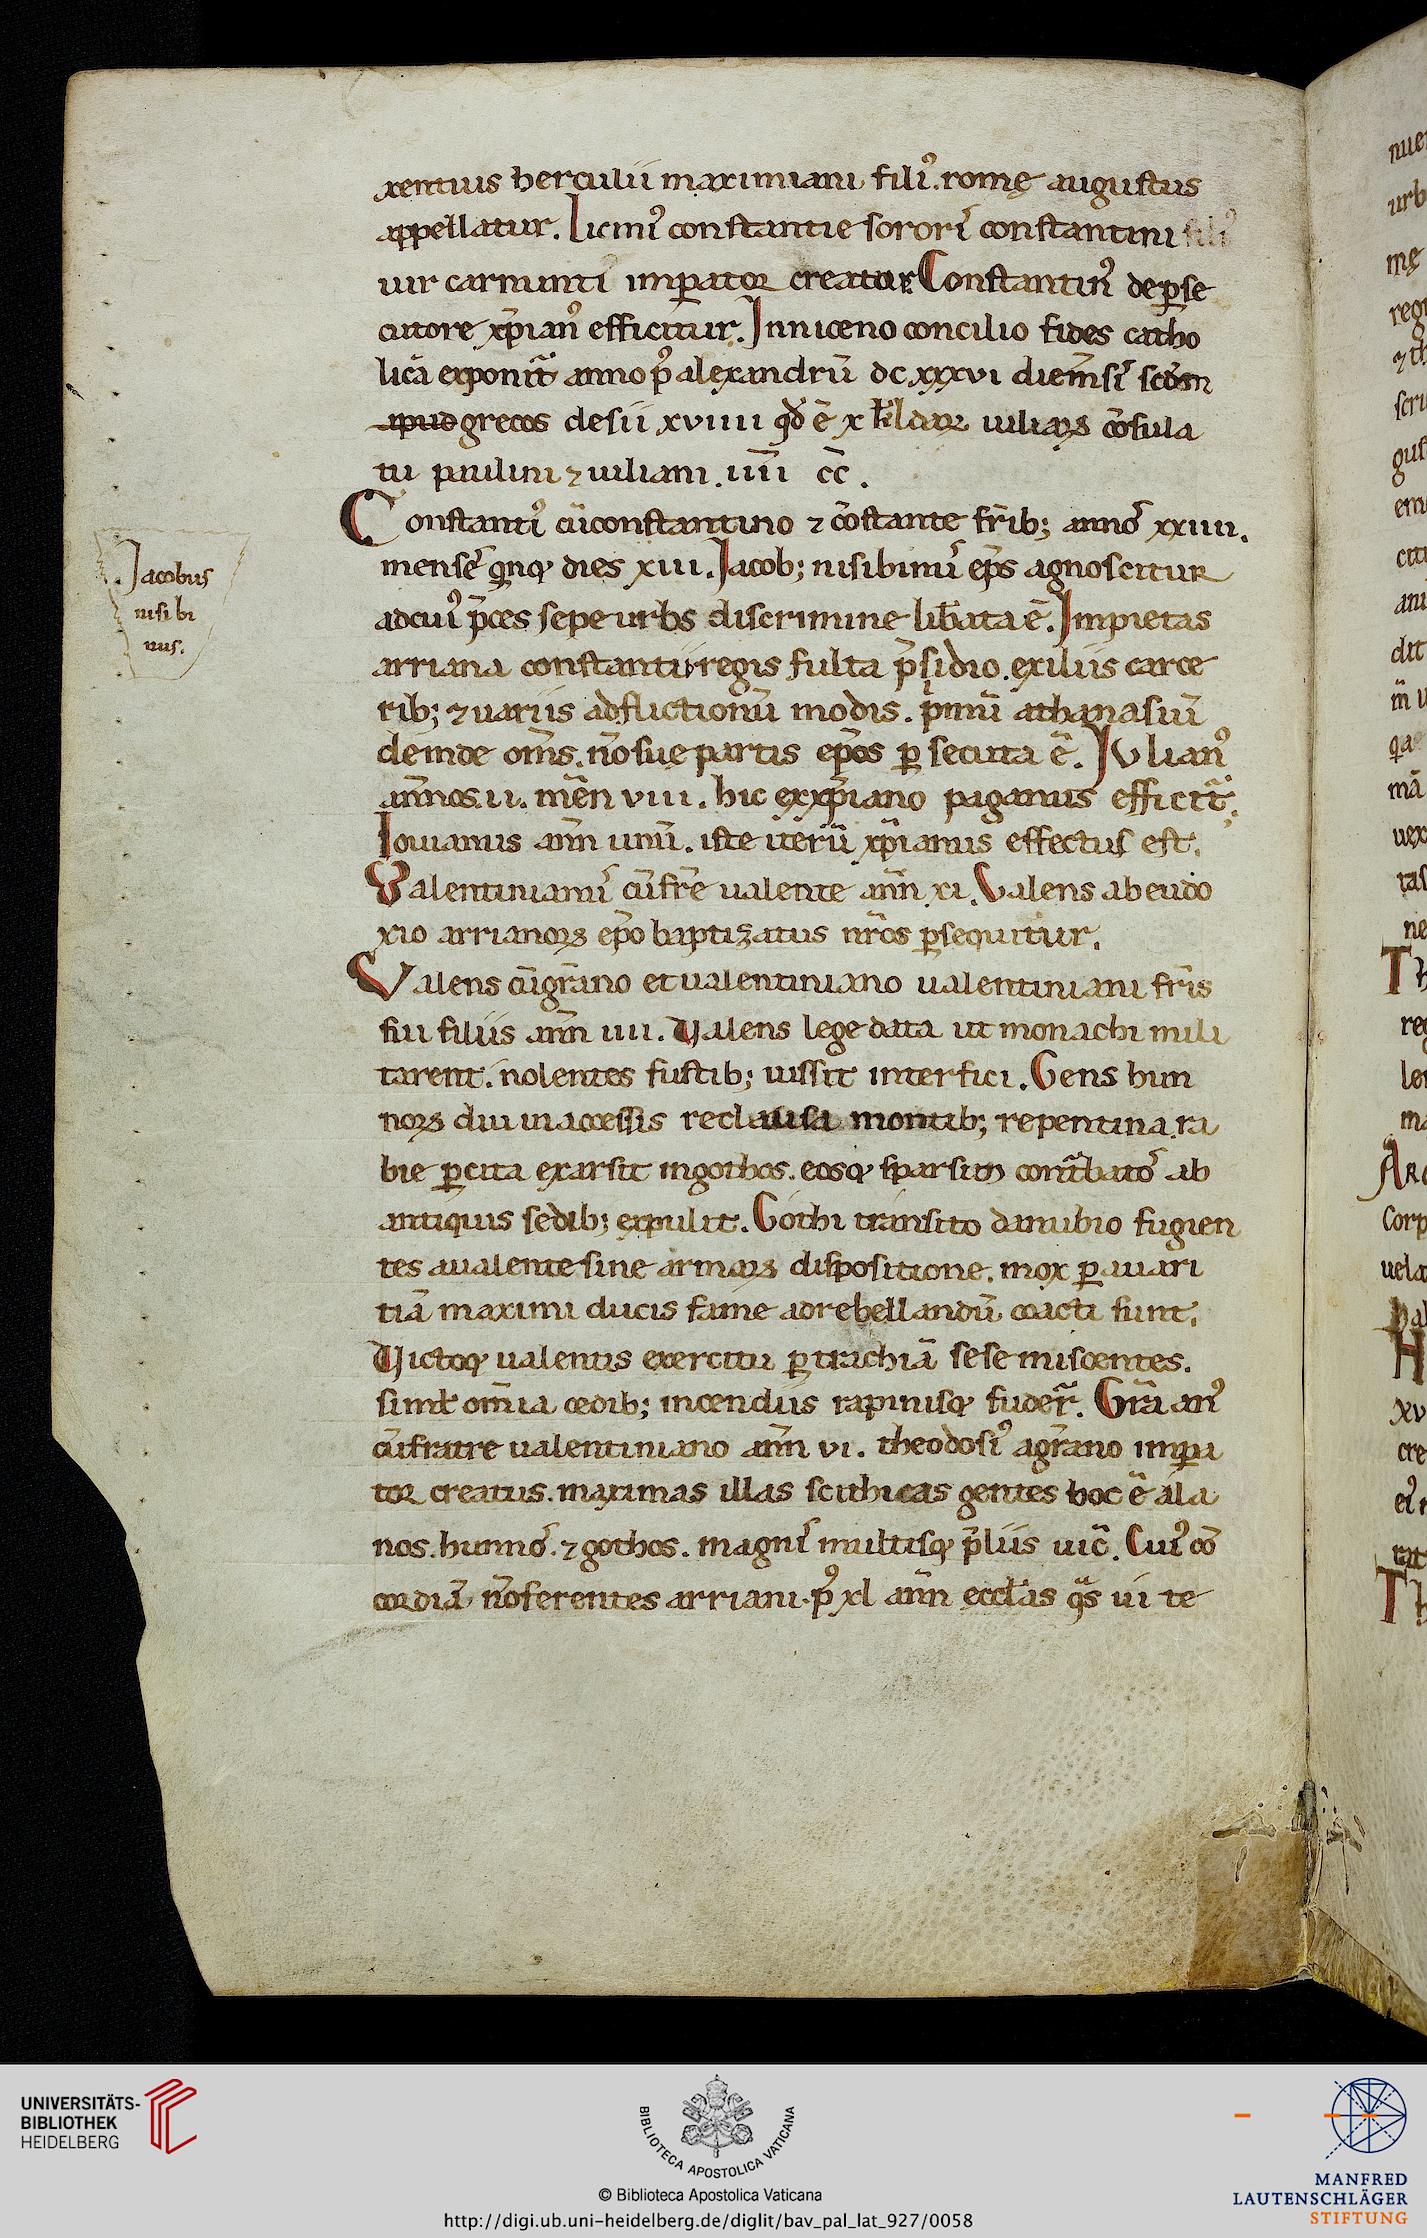 xentius herculii maximiani fili᾽. romę augustus
appellatur. Licini᾽ constantie soror᾽ constantini
uir carnunti imꝑator creatur Constantin᾽ de ꝑse
cutore xp̄ian᾽ efficitur. In niceno concilio fides catho
lica̅ exponit̃ anno p᾽ alexandru̅ dc xxxvi die m̅s᾽ scd̅m
apud grecos desii xviiii qd̅ e̅ x kl̅dar iuliaꝝ co̅sula
tu paulini ⁊ iuliani. iiii c̅c̅.
Constanti᾽ cu̅ constantino ⁊ co̅stante fr̅ib; anno᾽ xxiiii.
mense᾽ q̅nq dies xiii. Jacob; nisibinu᾽ ep̅s agnoscitur
ad cui᾽ p̅ces sepe urbs discrimine lib̅ata e̅. Impietas
arriana constantii regis fulta p̅sidio. exiliis carce
rib; ⁊ uariis adflictionu̅ modis. pͥmu̅ athanasiu̅
deinde om̅s. no̅ sue partis ep̅os ꝑ secuta e̅. Iulian᾽
annos. ii. me̅n viii. hic ex xp̅iano paganus efficit̃.
Iouianus an̅n unu̅. iste iteru̅ xp̅ianus effectus est.
Valentinianu᾽ cu̅ fr̅e ualente an̅n xi. Valens ab eudo
xio arrianoꝝ ep̅o baptizatus nr̅os ꝑsequitur.
Valens cu̅ gr̅ano et ualentiniano ualentiniani fr̅is
sui filiis an̅n iiii. Valens lege data ut monachi mili
tarent. nolentes fustib; iussit interfici. Gens hun
noꝝ diu inaccessis reclausa montib; repentina ra
bie ꝑcita exarsit in gothos. eosq sparsim cont̃bato᾽ ab
antiquis sedib; expulit. Gothi transito danubio fugien
tes a ualente sine armoꝝ dispositione. mox ꝑ auari
tia̅ maximi ducis fame ad rebellandu̅ coacti sunt.
Victoq ualentis exercitu ꝑ trachia̅ sese miscentes.
simt̅ om̅ia cedib; incendiis rapinisq fuder̃. Gr̅aan᾽
cu̅ fratre ualentiniano an̅n vi. theodosi᾽ a gr̅ano imꝑa
tor creatus. maximas illas scithicas gentes hoc e̅ ala
nos. hunno᾽. ⁊ gothos. magn᾽ multisq p̅liis uic̅. Cui᾽ co̅
cordia̅ no̅ ferentes arriani. p᾽ xl an̅n eccl̅as qͣs ui te
Jacobus
nisibi
nus.
UNIVERSITÄTS-
BIBLIOTHEK
HEIDELBERG
BIBLIOTECA APOSTOLICA VATICANA
© Biblioteca Apostolica Vaticana
http://digi.ub.uni-heidelberg.de/diglit/bav_pal_lat_927/0058
MANFRED
LAUTENSCHLÄGER
STIFTUNG